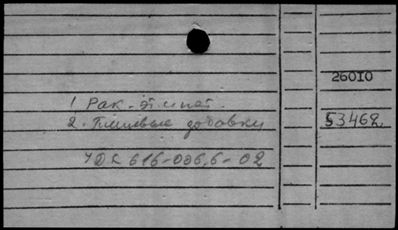 26010
1 Рак - этиопат.
2. Пищевые добавки
53462
УДК 616-006,6-02